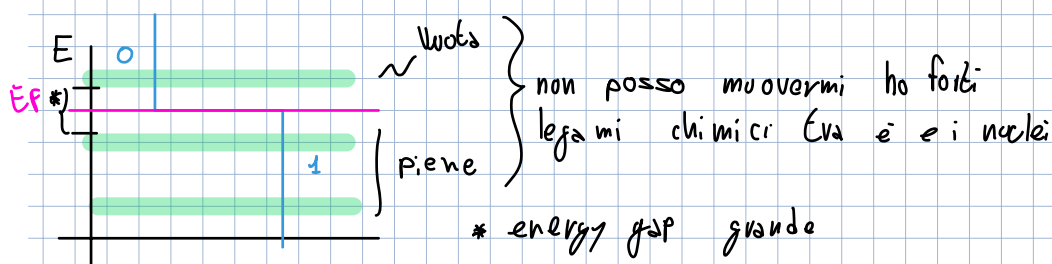 E
0
Vuota
EF *
non posso muovermi ho forti
legami chimici tra e⁻ e i nuclei
1
piene
* energy gap grande